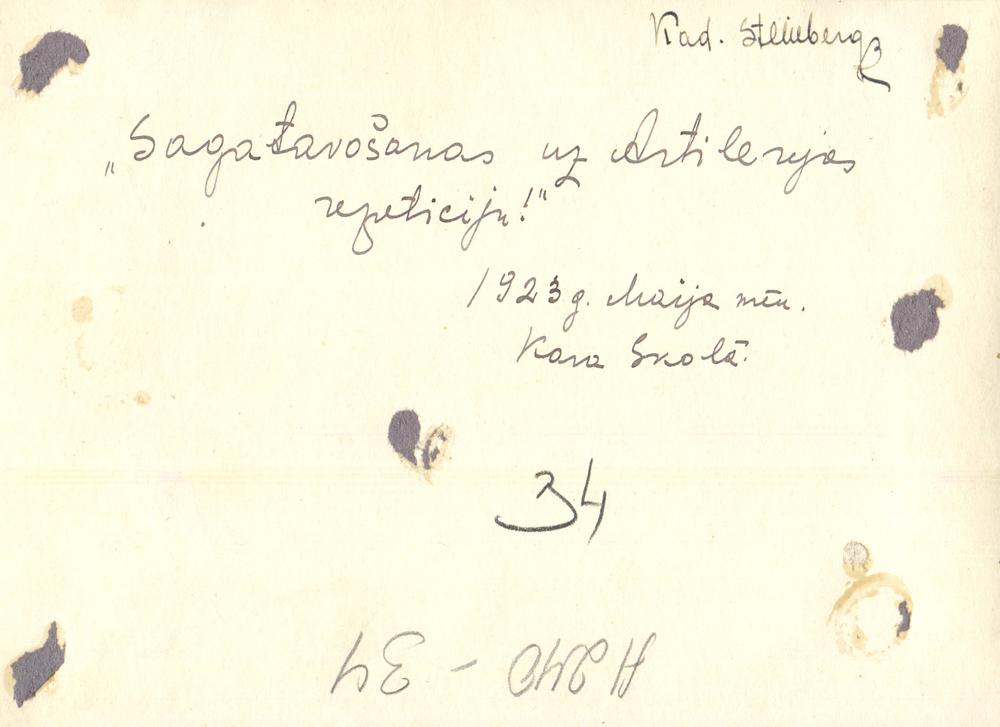 Kad. Steinberg
„Sagatavošanas uz Artilerijas
repeticiju!"
1923 g. Maija mēn.
Kara Skolā.
34
A240 - 34